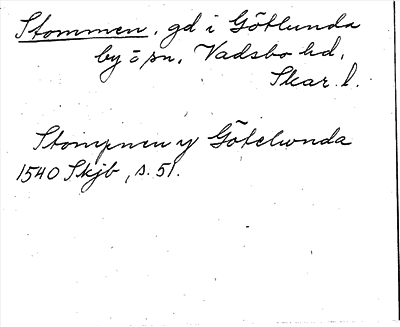 Stommen, gd i Götlunda
by o sn, Vadsbo hd,
Skar. l.
Stompnen y Götelwnda
1540 Skjb, s. 51.